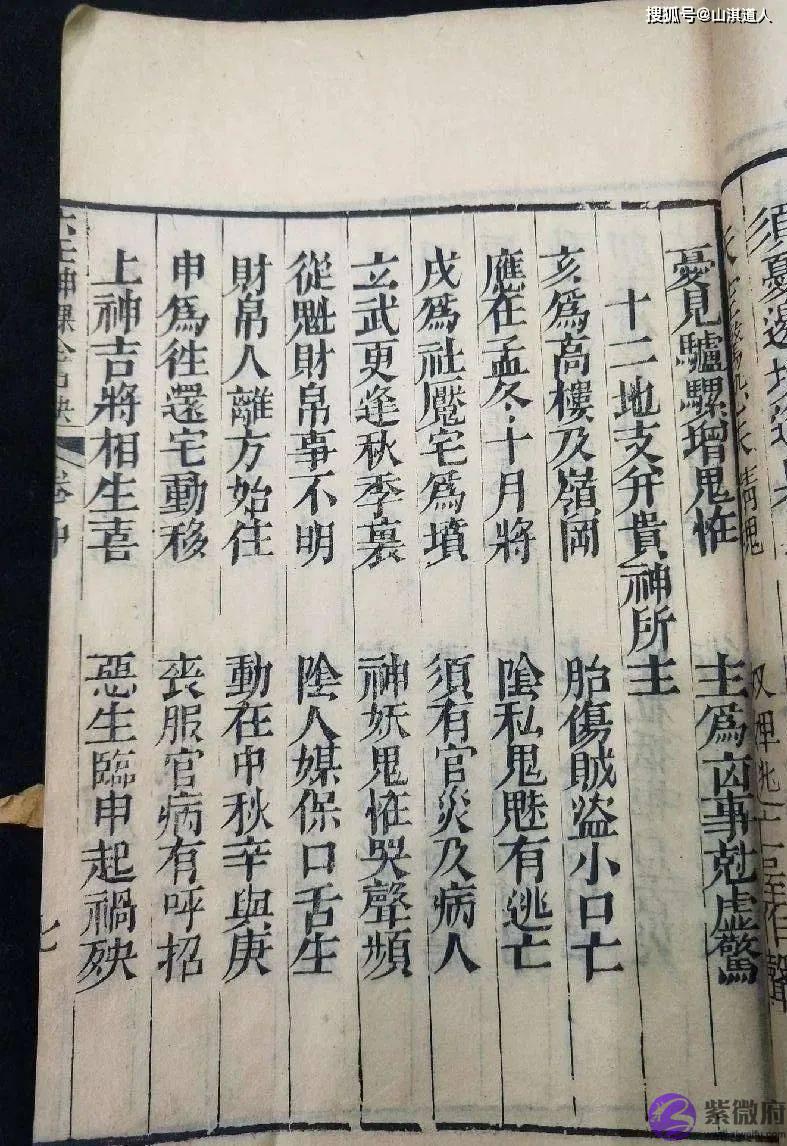 搜狐号@山淇道人
須憂邊
憂見驢騾增鬼恠　主爲凶事尅虛驚
十二地支弁貴神所主
亥爲高樓及嶺岡　胎傷賊盜小口亡
應在孟冬十月將　陰私鬼魅有逃亡
戌爲社魘宅爲墳　須有官災及病人
玄武更逢秋季裏　神妖鬼恠哭聲頻
從魁財帛事不明　陰人媒保口舌生
財帛人離方始住　動在中秋辛與庚
申爲徃還宅動移　喪服官病有呼招
上神吉將相生喜　惡生臨申起禍殃
六壬神課金口訣　卷中
七
紫微府